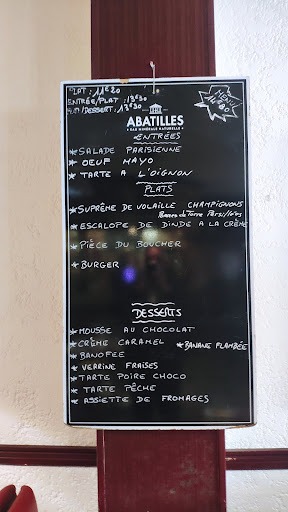 PLAT : 11€20
ENTRÉE/PLAT : 13€30
PLAT/DESSERT : 13€30
MENU
ABATILLES
EAU MINÉRALE NATURELLE
ENTRÉES
* SALADE PARISIENNE
* OEUF MAYO
* TARTE A L'OIGNON
PLATS
* SUPRÊME DE VOLAILLE CHAMPIGNONS
Pommes de Terre Persillées
* ESCALOPE DE DINDE A LA CRÈME
* PIÈCE DU BOUCHER
* BURGER
DESSERTS
* MOUSSE AU CHOCOLAT
* CRÈME CARAMEL * BANANE FLAMBÉE
* BANOFEE
* VERRINE FRAISES
* TARTE POIRE CHOCO
* TARTE PÊCHE
* ASSIETTE DE FROMAGES